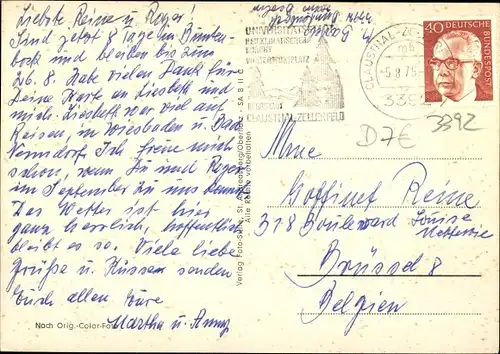 Liebste Reine u. Roger!
Sind jetzt 8 Tage in Bunten-
bock und bleiben bis zum
26.8. Habe vielen Dank für
Deine Karte an Liesbeth und
mich. Liesbeth war viel auf
Reisen, in Wiesbaden u. Bad
Nenndorf. Ich freue mich
schon, wenn Du und Roger
im September zu uns kommt
Das Wetter ist hier
ganz herrlich, hoffentlich
bleibt es so. Viele liebe
Grüße u. Küssen senden
Euch allen Eure
Martha u. Anny
Nach Orig.-Color-Fo
Verlag Foto- St. Andreasberg/Oberharz - SA 8 11 C
Alle Rechte vorbehalten
3392 Buntenbock
UNIVERSITÄT
HEILKLIMATISCHER
KURORT
WINTERSPORTPLATZ
BERGSTADT
CLAUSTHAL-ZELLERFELD
CLAUSTHAL-ZE
mb
-5.8.75
40
DEUTSCHE
BUNDESPOST
D 7€
3392
Mme
Goffinet Reine
318 Boulevard Louise
Brüssel 8
Belgien